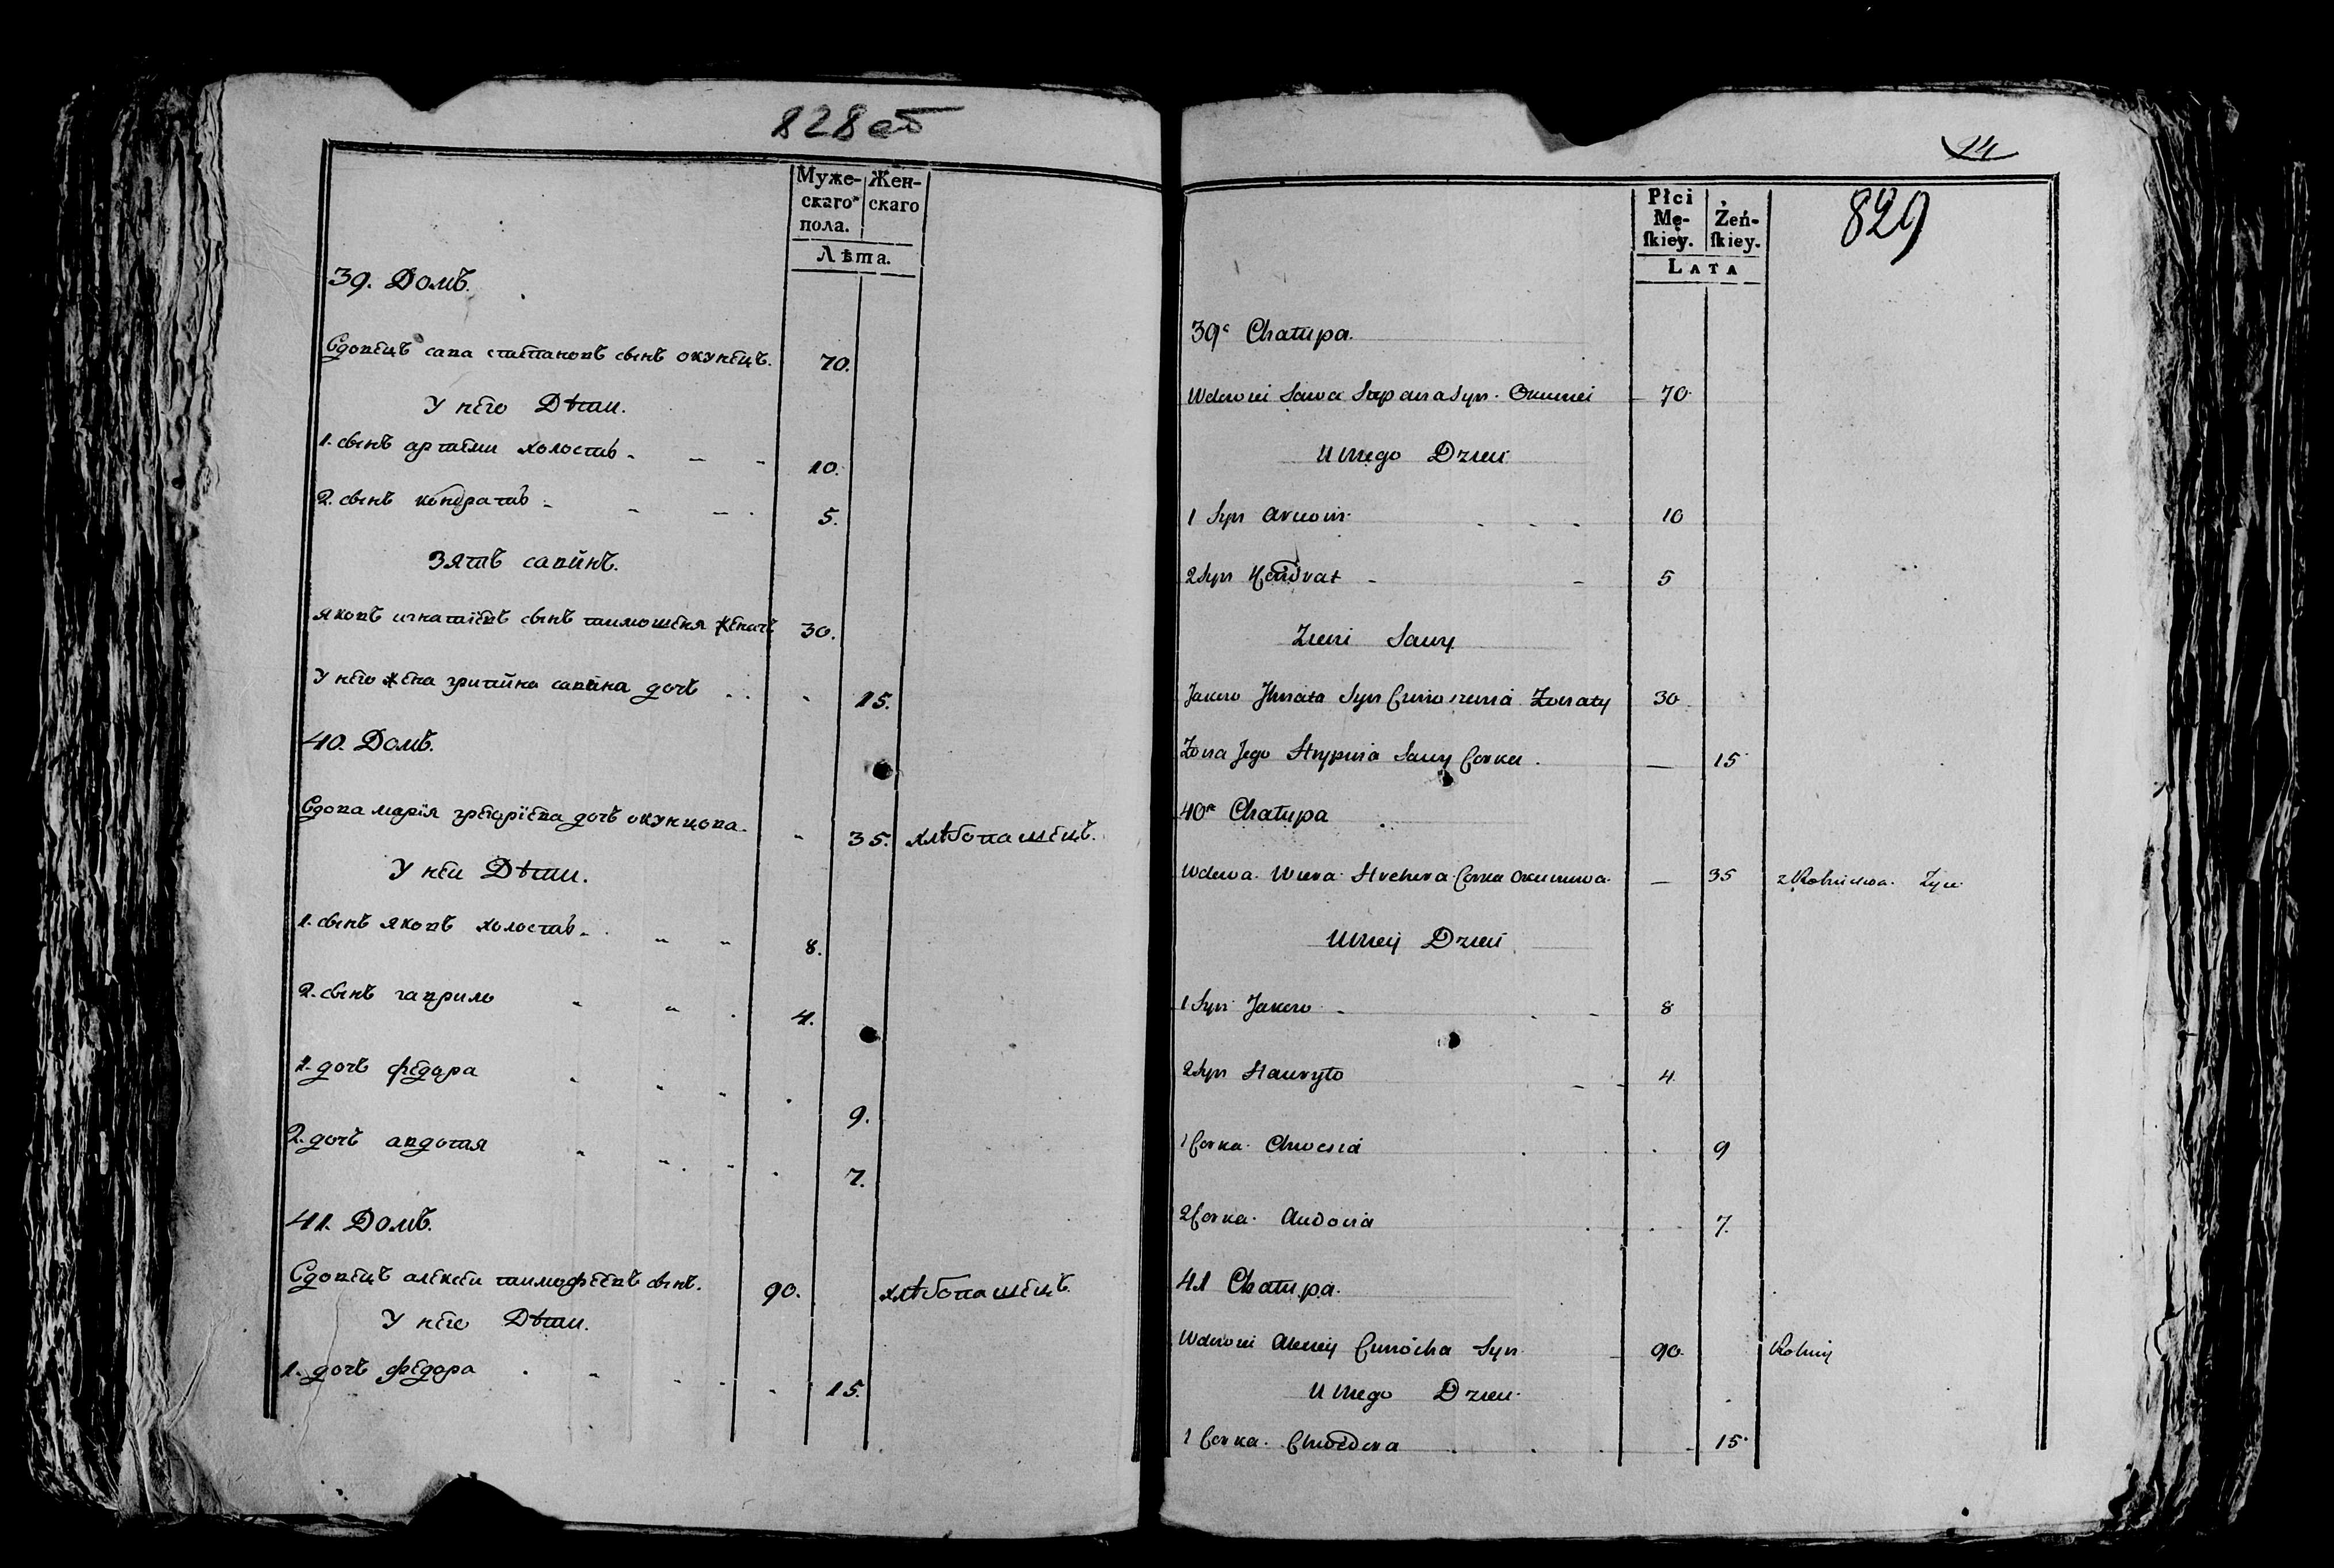 828 об
Муже-
скаго
пола.
Жен-
скаго
Лѣта.
39. Домъ.
Вдовецъ сава степановъ сынъ окунецъ. 70.
У него Дѣти.
1. сынъ артеми холостъ 10.
2. сынъ кондратъ 5.
Зять савинъ.
яковъ игнатіевъ сынъ тимошеня женатъ 30.
У него жена савина дочь 15.
40. Домъ.
Вдова марія грегоріева дочь окунцова. 35. хлѣбопашецъ.
У неи Дѣти.
1. сынъ яковъ холостъ 8.
2. сынъ гаврило 4.
1. дочь федора 9.
2. дочь авдотя 7.
41. Домъ.
Вдовецъ алексеи тимофѣевъ сынъ. 90. хлѣбопашецъ.
У него Дѣти.
1. дочь федора 15.
14
829
Płci
Mę-
ſkiey.
Żeń-
ſkiey.
LATA
39a Chałupa.
Wdowiec Sawa Stepana Syn Okuniec 70
U niego Dzieci
1 Syn 10
2 Syn Kondrat 5
Zienć Sawy
Jakow Ihnata Syn Cimoszenia Żonaty 30
Żona Jego Hrypina Sawy Corka 15
40a Chałupa
Wdowa Hrehora Corka Okuncowa 35 z Rolnictwa Żyie
U niey Dzieci
1 Syn Jakow 8
2 Syn Hawryło 4
1 Corka 9
2 Corka Audocia 7.
41 Chałupa.
Wdowiec Alexiey Cimocha Syn 90 Rolniy
U niego Dzieci
1 Corka Chwedora 15